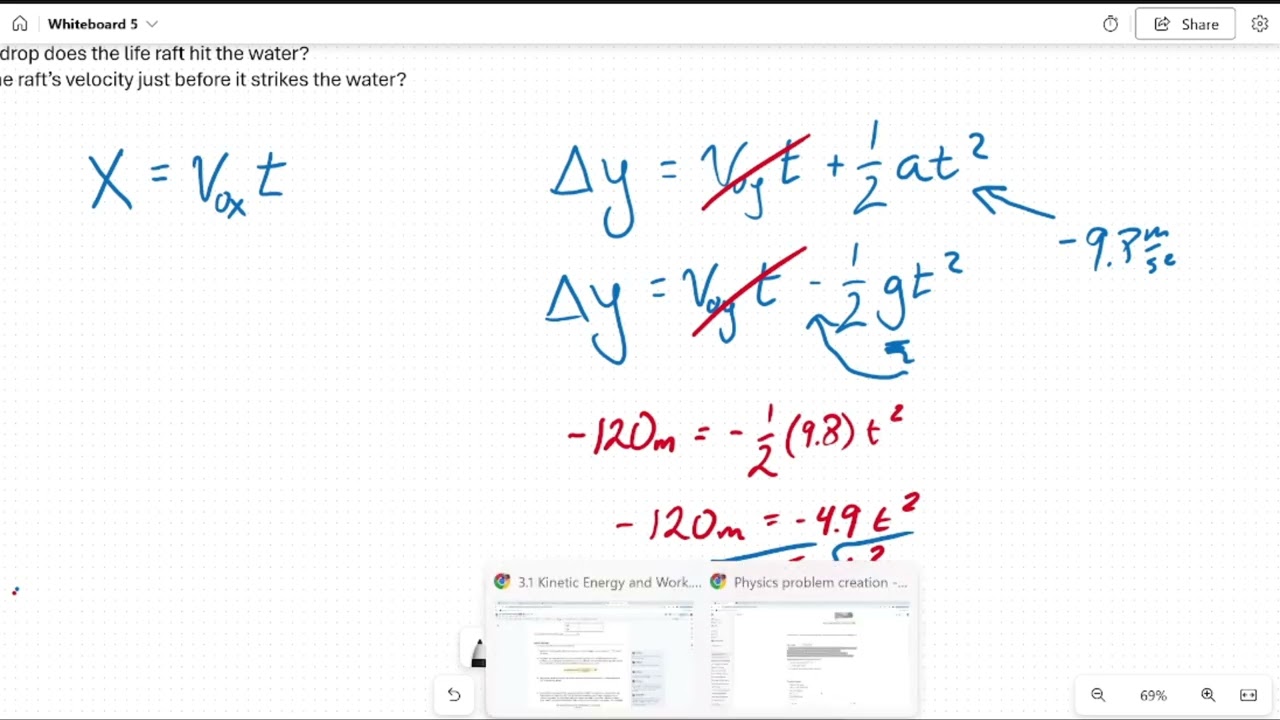 Whiteboard 5
Share
drop does the life raft hit the water?
e raft's velocity just before it strikes the water?
X = V₀ₓ t
Δy = V₀y t + 1/2 at²
-9.8 m/se
Δy = V₀y t - 1/2 gt²
-120m = - 1/2 (9.8) t²
-120m = -4.9 t²
3.1 Kinetic Energy and Work...
Physics problem creation -...
69%